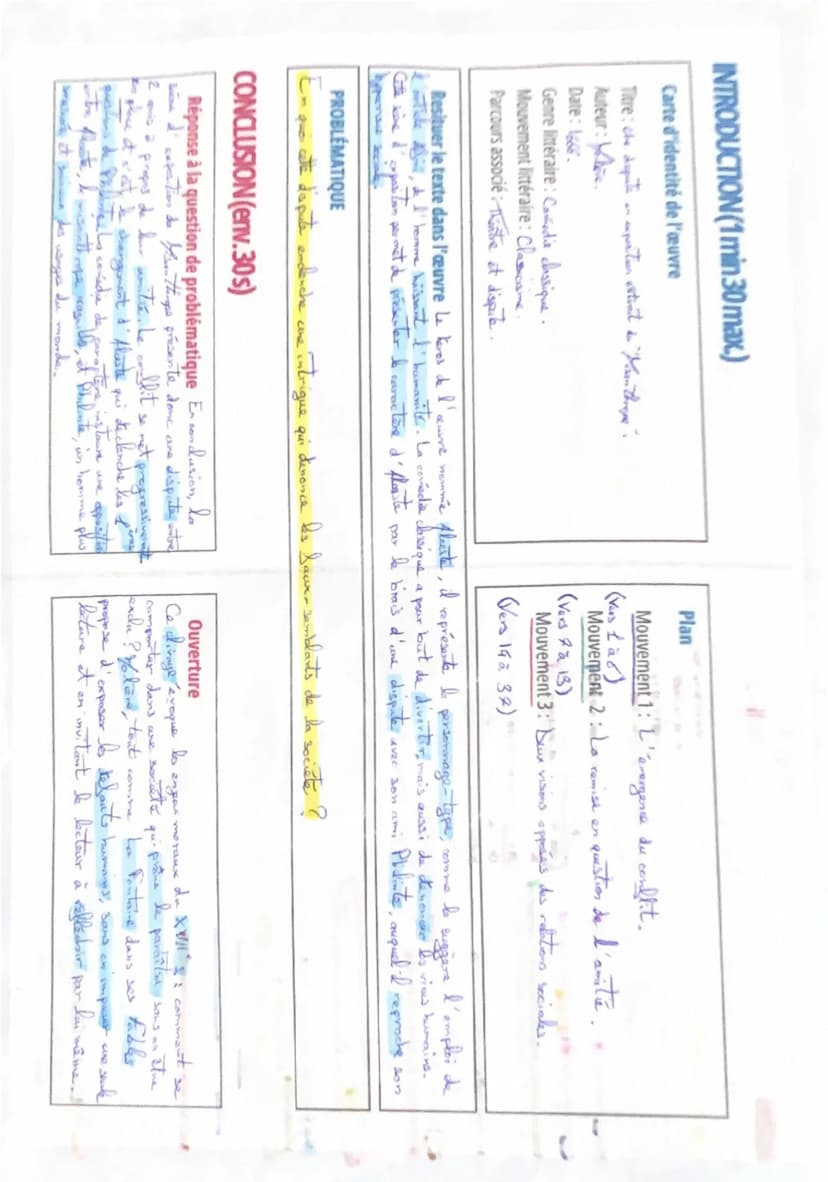 INTRODUCTION (1 min 30 max.)
Carte d'identité de l'œuvre
Titre : une dispute en exposition extrait du "Misanthrope".
Auteur : Molière.
Date : 1666.
Genre littéraire : Comédie classique.
Mouvement littéraire : Classicisme.
Parcours associé : Théâtre et dispute.
Plan
Mouvement 1 : L'émergence du conflit.
(Vers 1 à 6)
Mouvement 2 : La remise en question de l'amitié.
(Vers 7 à 13)
Mouvement 3 : Deux visions opposées des relations sociales.
(Vers 14 à 32)
Resituer le texte dans l'œuvre Le héros de l'œuvre nommée Alceste, il représente le personnage-type, comme le suggère l'emploi de
l'article de l'homme haïssant l'humanité. La comédie classique a pour but de divertir, mais aussi de dénoncer les vices humains.
Cette scène d'exposition permet de présenter le caractère d'Alceste par le biais d'une dispute avec son ami Philinte, auquel il reproche son
hypocrisie sociale.
PROBLÉMATIQUE
En quoi cette dispute enclenche une intrigue qui dénonce les faux-semblants de la société ?
CONCLUSION (env. 30 s)
Réponse à la question de problématique En conclusion, la
scène d'exposition du Misanthrope présente donc une dispute entre
2 amis à propos de leur amitié. Le conflit se met progressivement
en place et c'est le changement d'Alceste qui déclenche les
questions de Philinte. La comédie de caractère instaure une opposition
entre Alceste, le misanthrope et Philinte, un homme plus
mesuré et des usages du monde.
Ouverture
Ce évoque les enjeux moraux du XVII e s : comment se
comporter dans une société qui prône le paraître sans en être
exclu ? Molière, tout comme La Fontaine dans ses Fables
propose d'exposer les défauts humaines, sans en imposer une seule
lecture et en invitant le lecteur à réfléchir par lui même.